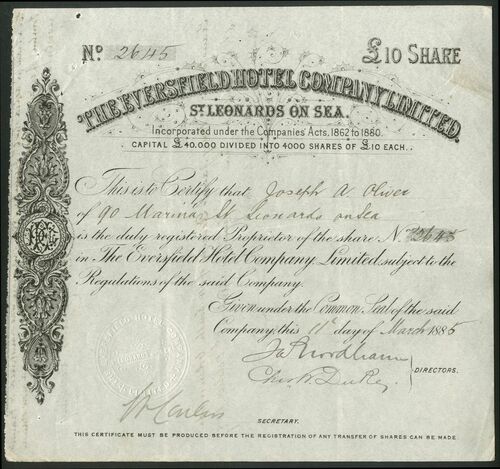 No. 2645 £10 SHARE
THE EVERSFIELD HOTEL COMPANY, LIMITED.
ST. LEONARDS ON SEA.
Incorporated under the Companies' Acts, 1862 to 1880.
CAPITAL £40,000 DIVIDED INTO 4000 SHARES OF £10 EACH.
This is to Certify that Joseph A Oliver
of 90 Marina, St Leonards on Sea
is the duly registered Proprietor of the share No. 2645
in The Eversfield Hotel Company Limited, subject to the
Regulations of the said Company.
Given under the Common Seal of the said
Company, this 11th day of March 1885
DIRECTORS.
SECRETARY.
THIS CERTIFICATE MUST BE PRODUCED BEFORE THE REGISTRATION OF ANY TRANSFER OF SHARES CAN BE MADE.